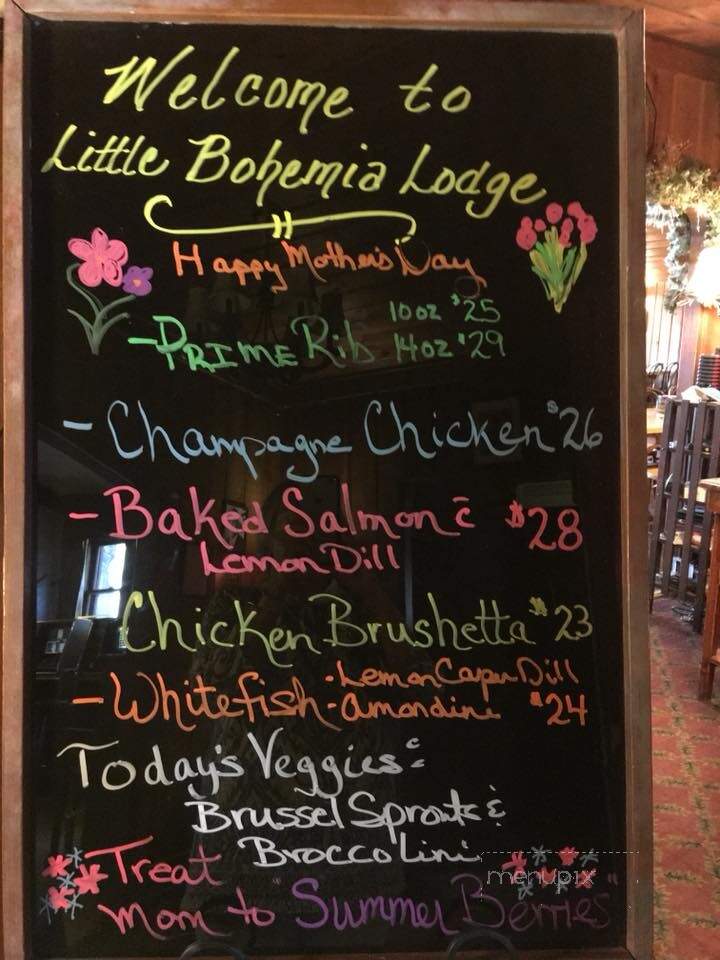 Welcome to
Little Bohemia Lodge
Happy Mother's Day
- Prime Rib 10oz $25
14oz $29
- Champagne Chicken $26
- Baked Salmon c̄ $28
Lemon Dill
Chicken Brushetta $23
- Whitefish · Lemon Caper Dill
· amandine $24
Today's Veggies:
Brussel Sprouts &
Broccolini
Treat
mom to "Summer Berries"
menupix